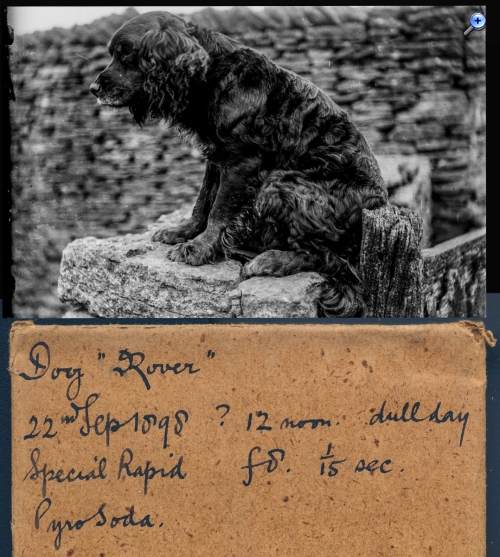 Dog "Rover"
22nd Sep 1898 ? 12 noon. dull day
Special Rapid f8. 1/15 sec.
Pyro Soda.